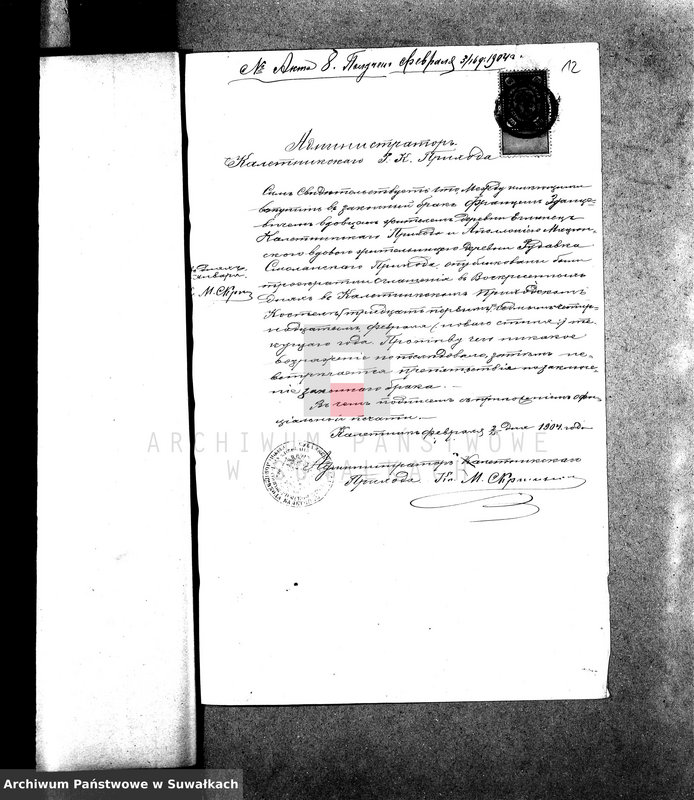 № Акта 8. Получено февраля 3/16 д. 1904 г.
12
Администраторъ
Калетникскаго Р. К. Прихода
Симъ Свидѣтельствуетъ что, между имѣющими
вступить въ законный бракъ Францемъ
вдовцемъ жителемъ деревни
Калетникскаго Прихода и
вдовою жительницею деревни Рудавка
Смолянскаго Прихода, опубликованы были
троекратныя оглашенія въ Воскресныхъ
дняхъ въ Калетникскомъ Приходскомъ
Костелѣ
февраля (новаго стиля) те-
кущаго года. Противу чего никакое
возраженіе не послѣдовало, затѣмъ не
встрѣчается препятствія къ заключе-
нію законнаго брака. —
Въ чемъ подписомъ съ приложеніемъ офи-
ціальной печати. —
Калетникъ февраля 3 дня 1904 года
Администраторъ Калетникскаго
Прихода Кс. М.
января
М. Скри
ARCHIWUM PAŃSTWOWE
W SUWAŁKACH
Archiwum Państwowe w Suwałkach